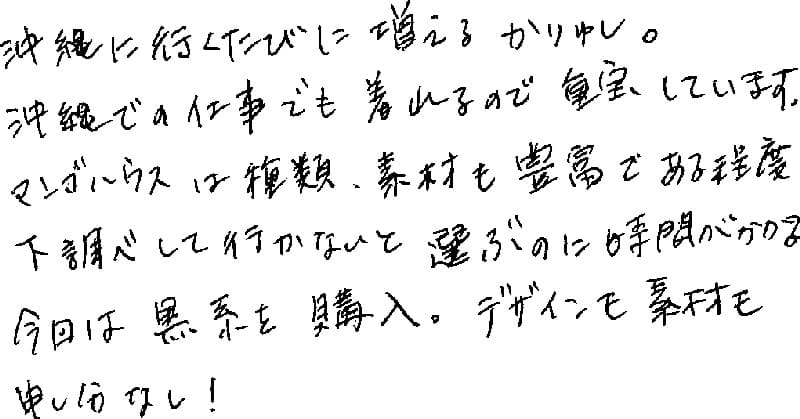 沖縄に行くたびに増えるかりゆし。
沖縄での仕事でも着れるので重宝しています。
マンゴハウスは種類、素材も豊富である程度
下調べして行かないと選ぶのに時間がかかる
今回は黒系を購入。デザインも素材も
申し分なし!